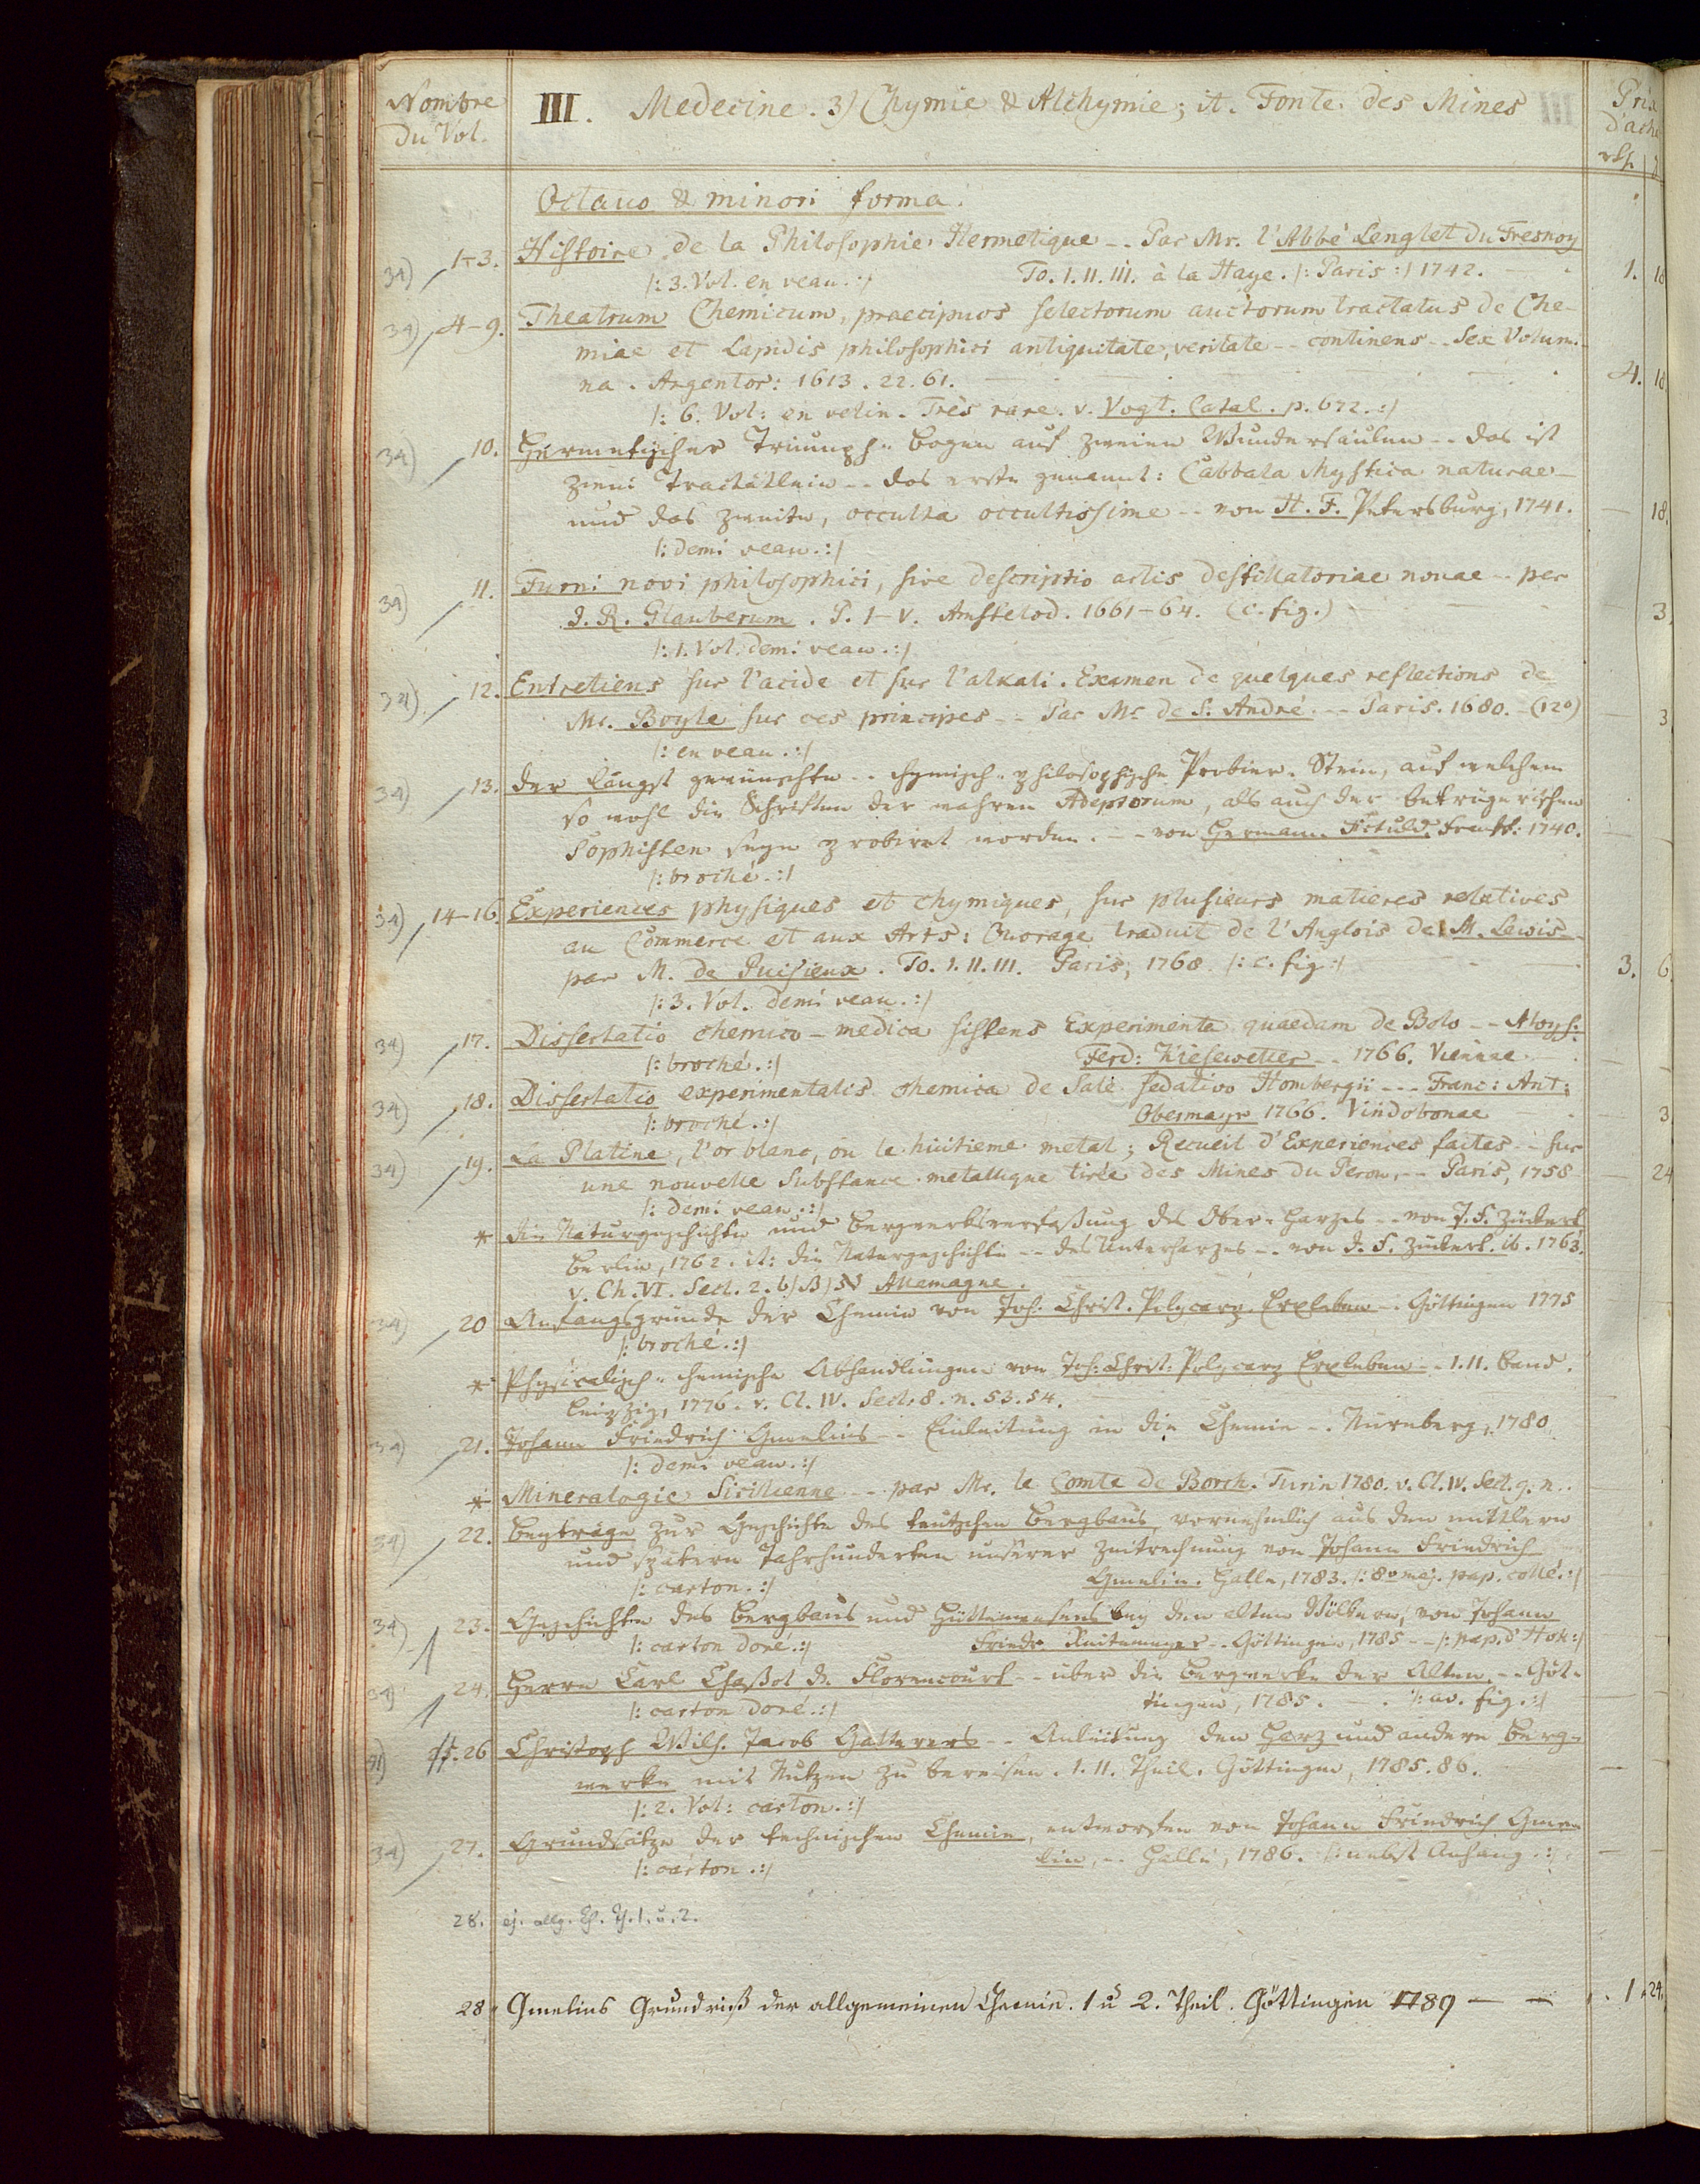 Nombre du Vol.
III. Medecine. 3) Chymie & Alchymie; it. Fonte des Mines
Octauo & minori forma.
34) 1-3. Histoire de la Philosophie Hermetique -- Par Mr. l'Abbé Lenglet Du Fresnoy
|: 3. Vol. en veau. :| To. I. II. III. à la Haye. |: Paris :| 1742. 1.
34) 4-9. Theatrum Chemicum, praecipuos selectorum auctorum tractatus de Che-
miae et Lapidis philosophici antiquitate, veritate -- continens -- Sex Volumi-
na. Argentor: 1613. 22. 61. 4.
|: 6. Vol: en velin. Très rare. v. Vogt. Catal. p. 672. :|
34) 10. Hermetischer Triumph-bogen auf zweien Wundersäulen -- das ist
zwei Tractätlein -- das erste genannt: Cabbala Mystica naturae -
und das zweite, occulta occultissime -- von H. F. Petersburg, 1741. — 18.
|: demi veau. :|
34) 11. Furni novi philosophici, sive descriptio artis destillatoriae nouae -- per
J. R. Glauberum. P. I-V. Amstelod. 1661-64. (c. fig.) 3.
|: 1. Vol. demi veau. :|
34) 12. Entretiens sur l'acide et sur l'alkali. Examen de quelques reflections de
Mr. Boyle sur ces principes -- Par Mr de S. André -- Paris. 1680. - (12º) — 3
|: en veau. :|
34) 13. Der längst gewünschte -- chymisch-philosophische Probier-Stein, auf welchem
so wohl die Schriften der wahren Adeptorum, als auch der betrügerischen
Sophisten seyn probirt worden. -- von Hermann Fictuld. Frankf: 1740. —
|: broché. :|
34) 14-16. Experiences physiques et chymiques, sur plusieurs matieres relatives
au Commerce et aux Arts: Ouvrage traduit de l'Anglois de M. Lewis -
par M. de Puisieux. To. I. II. III. Paris, 1768. |: c. fig :| 3. 6
|: 3. Vol. demi veau. :|
34) 17. Dissertatio chemico-medica sistens Experimenta quaedam de Bolo -- Aloys:
|: broché. :| Ferd: Kiesewetter -- 1766. Viennae.
34) 18. Dissertatio experimentalis chemica de Sale sedativo Hombergii --- Franc: Ant:
|: broché. :| Obermayr 1766. Vindobonae 3
34) 19. La Platine, l'or blanc, ou le huitieme metal; Recueil d'Experiences faites -- sur
une nouvelle Substance metallique tirée des Mines du Perou, -- Paris, 1758 — 24
|: demi veau. :|
* Die Naturgeschichte und Bergwerksverfaßung des Ober-Harzes -- von J. F. Zückert
Berlin, 1762. it: die Naturgeschichte -- des Unterharzes -- von J. F. Zückert. ib. 1763.
v. Ch. VI. Sect. 2. b) Allemagne.
34) 20 Anfangsgründe der Chemie von Joh. Christ. Polycarp. Erxleben -- Göttingen 1775
|: broché. :|
* Physicalisch-chemische Abhandlungen von Joh: Christ: Polycarp Erxleben -- I. II. Band.
Leipzig, 1776. v. Cl. IV. Sect. 8. n. 53. 54.
34) 21. Johann Friedrich Gmelins -- Einleitung in die Chemie -. Nürnberg, 1780
|: demi veau. :|
* Mineralogie Sicilienne -- par Mr. le Comte de Borch. Turin 1780. v. Cl. IV. Sect. 9. n..
34) 22. Beyträge zur Geschichte des teutschen Bergbaus, vornehmlich aus den mittlern
und spätern Jahrhunderten unserer Zeitrechnung von Johann Friedrich
|: carton. :| Gmelin. Halle, 1783. |: 8º maj. pap. collé. :|
34) 23. Geschichte des Bergbaus und Hüttenwesens bey den alten Völkern, von Johann
|: carton doré. :| Friedr Reitemeyer -- Göttingen, 1785 -- |: pap. d'Holl :|
34) 24. Herrn Carl Chaßot de Florencourt -- über die Bergwerke der Alten. -- Göt-
|: carton doré. :| tingen, 1785. -. |: av. fig. :|
34) 25. 26 Christoph Wilh. Jacob Gatterers -- Anleitung den Harz und andere Berg-
werke mit Nutzen zu bereisen. I. II. Theil. Göttingen, 1785. 86. —
|: 2. Vol: carton. :|
34) 27. Grundsätze der technischen Chemie, entworfen von Johann Friedrich Gme-
|: carton. :| lin, -- Halle, 1786. |: nebst Anhang. :| —
28. ej. allg. Ch. Th. 1. u. 2.
28. Gmelins Grundriß der allgemeinen Chemie. 1 u 2. Theil. Göttingen 1789 — — 1. 24.